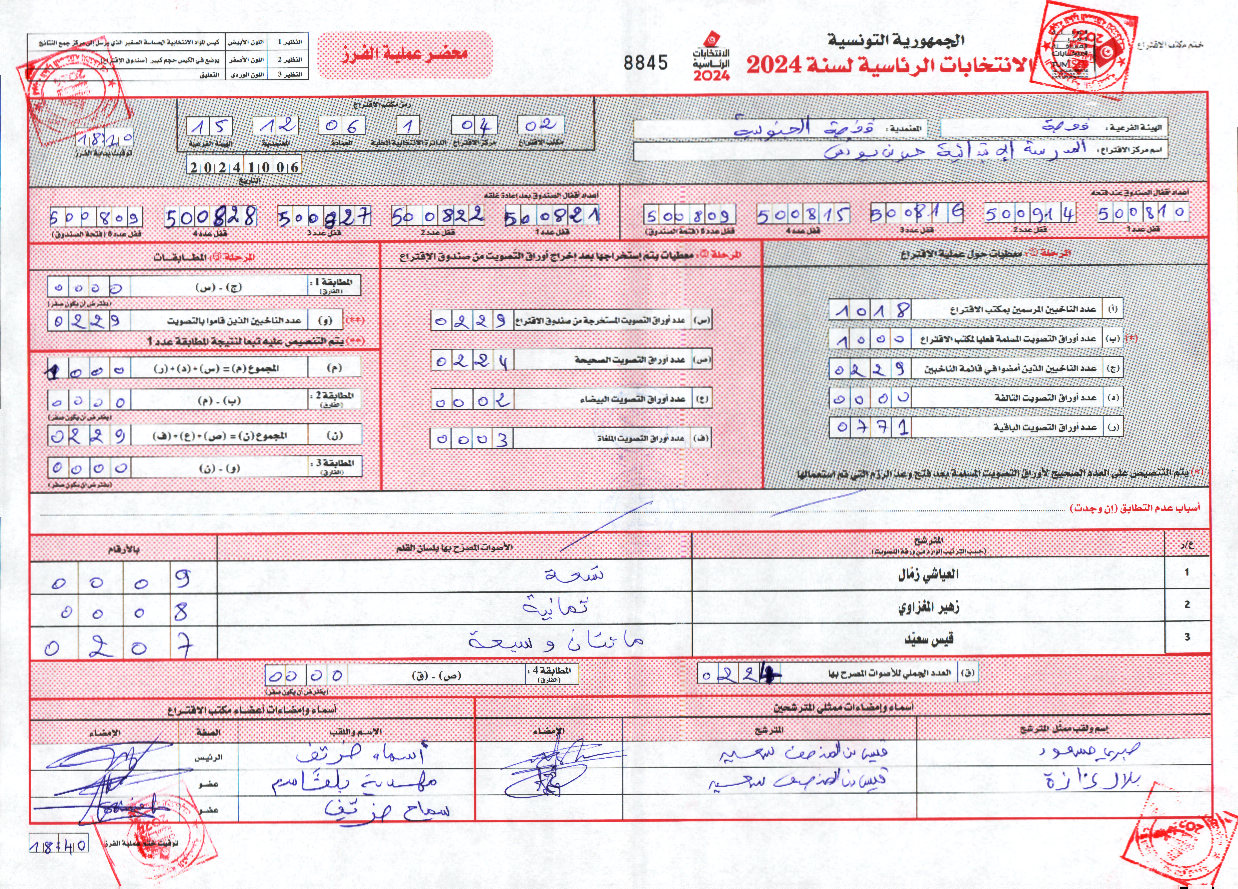 الجمهورية التونسية
الانتخابات الرئاسية لسنة 2024
الانتخابات الرئاسية 2024
8845
محضر عملية الفرز
النظير 1 اللون الأبيض كيس المواد الانتخابية الحساسة الصغير الذي يرسل إلى مركز جمع النتائج
النظير 2 اللون الأصفر يوضع في الكيس حجم كبير (صندوق الاقتراع)
النظير 3 اللون الوردي التعليق
ختم مكتب الاقتراع
الهيئة الفرعية: قفصة
المعتمدية: قفصة الجنوبية
اسم مركز الاقتراع: المدرسة الإبتدائية
رمز مكتب الاقتراع
02 04 1 06 12 15
مكتب الاقتراع مركز الاقتراع الدائرة الانتخابية المحلية العمادة المعتمدية الهيئة الفرعية
20241006
التاريخ
18:10
توقيت بداية الفرز
أعداد أقفال الصندوق عند فتحه
500810 500914 500816 500815 500809
قفل عدد 1 قفل عدد 2 قفل عدد 3 قفل عدد 4 قفل عدد 5 (فتحة الصندوق)
أعداد أقفال الصندوق بعد إعادة غلقه
500821 500822 500827 500828 500809
قفل عدد 1 قفل عدد 2 قفل عدد 3 قفل عدد 4 قفل عدد 5 (فتحة الصندوق)
المرحلة ①: معطيات حول عملية الاقتراع
(أ) عدد الناخبين المرسمين بمكتب الاقتراع 1018
(*) (ب) عدد أوراق التصويت المسلمة فعليا لمكتب الاقتراع 1000
(ج) عدد الناخبين الذين أمضوا في قائمة الناخبين 0229
(د) عدد أوراق التصويت التالفة 0000
(ر) عدد أوراق التصويت الباقية 0771
(*) يتم التنصيص على العدد الصحيح لأوراق التصويت المسلمة بعد فتح وعد الرزم التي تم استعمالها
المرحلة ②: معطيات يتم إستخراجها بعد إخراج أوراق التصويت من صندوق الاقتراع
(س) عدد أوراق التصويت المستخرجة من صندوق الاقتراع 0229
(ص) عدد أوراق التصويت الصحيحة 0224
(ع) عدد أوراق التصويت البيضاء 0002
(ف) عدد أوراق التصويت الملغاة 0003
المرحلة ③: المطابقات
المطابقة 1: (الفارق) (ج) - (س) 0000
(يفترض أن يكون صفر)
(**) (و) عدد الناخبين الذين قاموا بالتصويت 0229
(**) يتم التنصيص عليه تبعا لنتيجة المطابقة عدد 1
(م) المجموع (م) = (س) + (د) + (ر) 1000
المطابقة 2: (الفارق) (ب) - (م) 0000
(يفترض أن يكون صفر)
(ن) المجموع (ن) = (ص) + (ع) + (ف) 0229
المطابقة 3: (الفارق) (و) - (ن) 0000
(يفترض أن يكون صفر)
أسباب عدم التطابق (إن وجدت)
ع/ر المترشح الأصوات المصرح بها بلسان القلم بالأرقام
(حسب الترتيب الوارد في ورقة التصويت)
1 العياشي زمّال تسعة 0009
2 زهير المغزاوي ثمانية 0008
3 قيس سعيّد مائتان و سبعة 0207
(ق) العدد الجملي للأصوات المصرح بها 0224
المطابقة 4: (الفارق) (ص) - (ق) 0000
(يفترض أن يكون صفر)
أسماء وإمضاءات ممثلي المترشحين
إسم ولقب ممثل المترشح المترشح الإمضاء
صبري مسعود قيس بن المنصف سعيد
بلال قيس بن المنصف سعيد
أسماء وإمضاءات أعضاء مكتب الاقتراع
الاسم واللقب الصفة الإمضاء
أسماء ضريف الرئيس
مهدية بلقاسم عضو
سماح ضريف عضو
18:40
توقيت ختم عملية الفرز